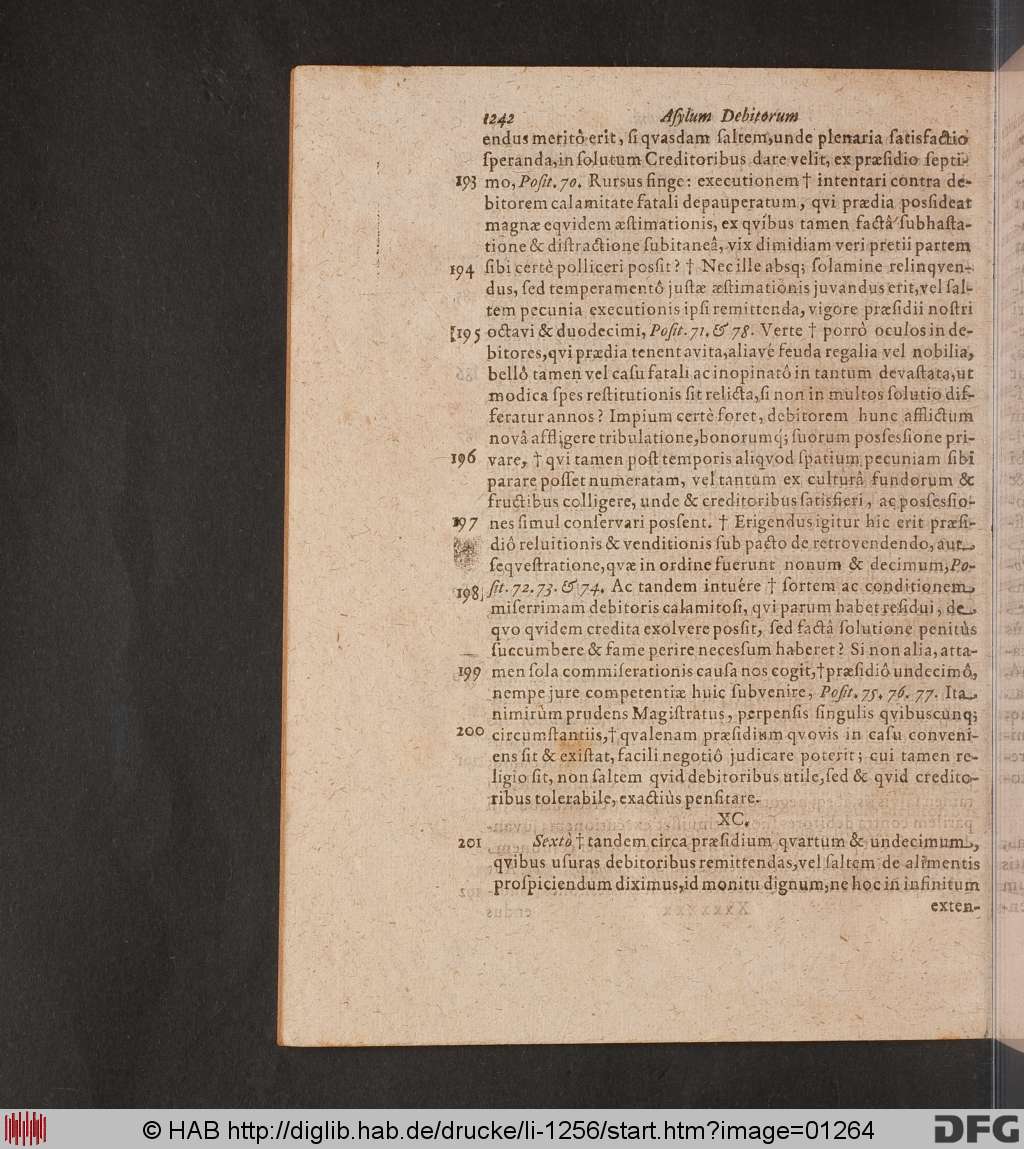 1242 Aſylum Debitorum
endus meritò erit, ſi qvasdam ſaltem, unde plenaria ſatisfactio
ſperanda, in ſolutum Creditoribus dare velit, ex præſidio ſepti-
193 mo, Poſit. 70. Rursus finge: executionem † intentari contra de-
bitorem calamitate fatali depauperatum, qvi prædia posſideat
magnæ eqvidem æſtimationis, ex qvibus tamen factâ ſubhaſta-
tione & diſtractione ſubitaneâ, vix dimidiam veri pretii partem
194 ſibi certè polliceri posſit? † Nec ille absq; ſolamine relinqven-
dus, ſed temperamentô juſtæ æſtimationis juvandus erit, vel ſal-
tem pecunia executionis ipſi remittenda, vigore præſidii noſtri
195 octavi & duodecimi, Poſit. 71. & 78. Verte † porrò oculos in de-
bitores, qvi prædia tenent avita, aliavè feuda regalia vel nobilia,
bellô tamen vel caſu fatali ac inopinatô in tantum devaſtata, ut
modica ſpes reſtitutionis ſit relicta, ſi non in multos ſolutio dif-
feratur annos? Impium certè foret, debitorem hunc afflictum
novâ affligere tribulatione, bonorumq; ſuorum posſesſione pri-
196 vare, † qvi tamen poſt temporis aliqvod ſpatium pecuniam ſibi
parare poſſet numeratam, vel tantum ex culturâ fundorum &
fructibus colligere, unde & creditoribus ſatisfieri, ac posſesſio-
197 nes ſimul conſervari posſent. † Erigendus igitur hic erit præſi-
diô reluitionis & venditionis ſub pacto de retrovendendo, aut
ſeqveſtratione, qvæ in ordine fuerunt nonum & decimum, Po-
198 ſit. 72. 73. & 74. Ac tandem intuére † ſortem ac conditionem
miſerrimam debitoris calamitoſi, qvi parum habet reſidui, de
qvo qvidem credita exolvere posſit, ſed factâ ſolutione penitùs
ſuccumbere & fame perire necesſum haberet? Si non alia, atta-
199 men ſola commiſerationis cauſa nos cogit, † præſidiô undecimô,
nempe jure competentiæ huic ſubvenire, Poſit. 75. 76. 77. Ita
nimirùm prudens Magiſtratus, perpenſis ſingulis qvibuscunq;
200 circumſtantiis, † qvalenam præſidium qvovis in caſu conveni-
ens ſit & exiſtat, facili negotiô judicare poterit; cui tamen re-
ligio ſit, non ſaltem qvid debitoribus utile, ſed & qvid credito-
ribus tolerabile, exactiùs penſitare.
XC.
201 Sextò † tandem circa præſidium qvartum & undecimum,
qvibus uſuras debitoribus remittendas, vel ſaltem de alimentis
proſpiciendum diximus, id monitu dignum, ne hoc in infinitum
exten-
© HAB http://diglib.hab.de/drucke/li-1256/start.htm?image=01264
DFG